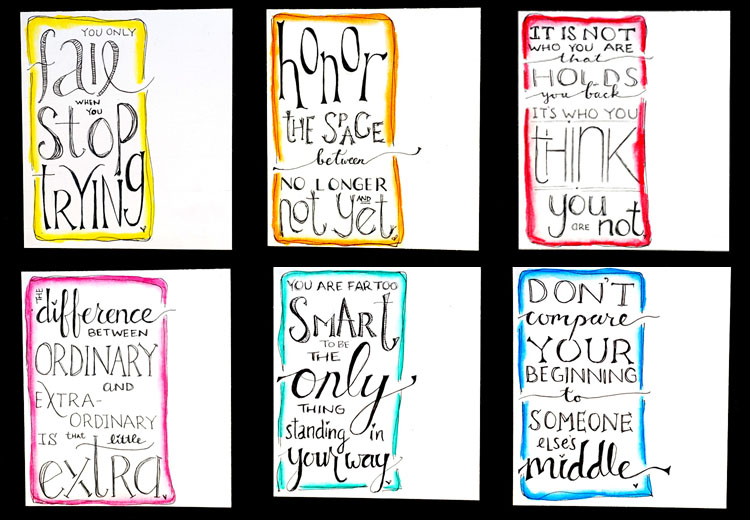 YOU ONLY
fail
WHEN
YOU
STOP
TRYING
honor
THE SPACE
between
NO LONGER
AND
not yet
IT IS NOT
WHO YOU ARE
that
HOLDS
you back
IT'S WHO YOU
THINK
you
ARE not.
THE
difference
BETWEEN
ORDINARY
AND
EXTRA-
ORDINARY
IS THAT little
extra.
YOU ARE FAR TOO
SMART
TO BE
THE
only
THING
standing in
your way
DON'T
compare
YOUR
BEGINNING
to
SOMEONE
ELSE'S
middle.